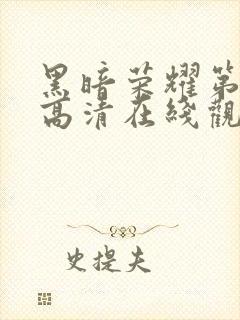 黑暗荣耀第
高清在綫觀
史提夫